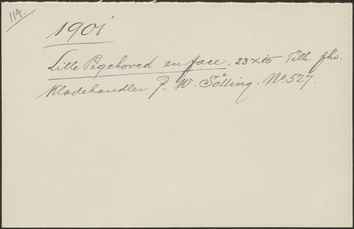 114.
1901
Lille Pigehoved en face. 23 x 15 Tilh. fhv.
Kladehandler F. W. Sölling. No 527.